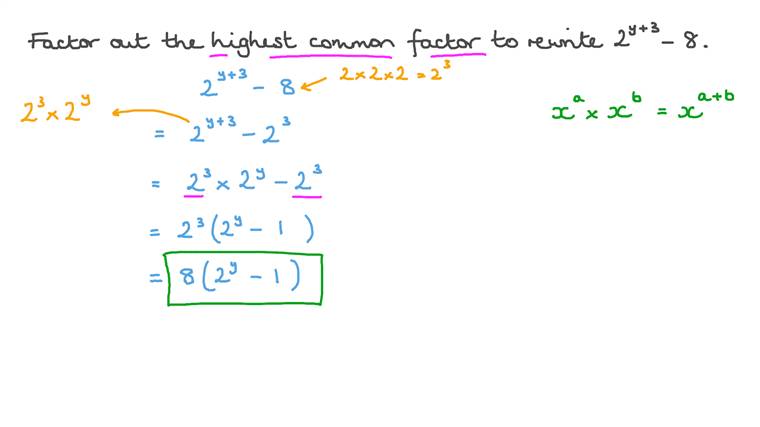 Factor out the highest common factor to rewrite 2^{y+3} - 8.
2^{y+3} - 8
2 × 2 × 2 = 2^3
2^3 × 2^y
x^a × x^b = x^{a+b}
= 2^{y+3} - 2^3
= 2^3 × 2^y - 2^3
= 2^3 (2^y - 1)
= 8 (2^y - 1)